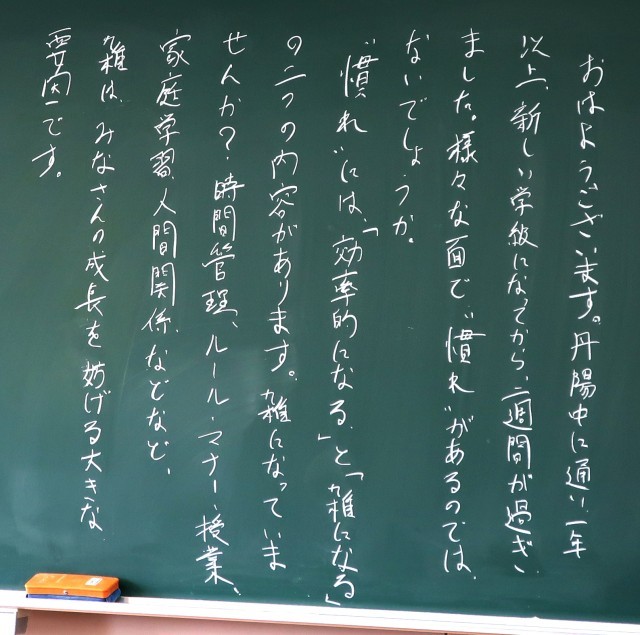 おはようございます。丹陽中に通い一年
以上、新しい学級になってから、二週間が過ぎ
ました。様々な面で、“慣れ”があるのでは
ないでしょうか。
“慣れ”には、「効率的になる」と「雑になる」
の二つの内容があります。雑になっていま
せんか?時間管理、ルール・マナー、授業、
家庭学習、人間関係、などなど、
雑は、みなさんの成長を妨げる大きな
要因です。